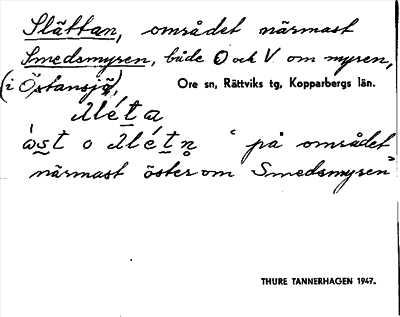 Slättan, området närmast
Smedsmyren, både O och V om myren,
(i Östansjö),
Ore sn, Rättviks tg, Kopparbergs län.
Slé̱ta
ås̱t o Slé̱tn̥ "på området
närmast öster om Smedsmyren"
THURE TANNERHAGEN 1947.